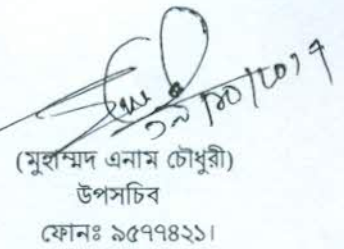 ১৯/১০/২০১৭
(মুহাম্মদ এনাম চৌধুরী)
উপসচিব
ফোনঃ ৯৫৭৭৪২১।